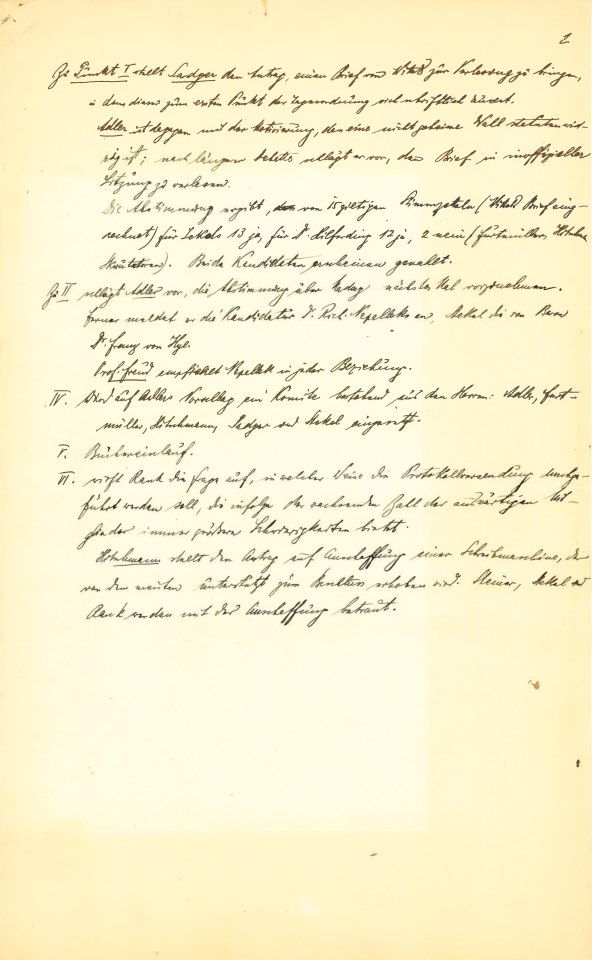 2
Zu Punkt I stellt Sadger den Antrag, einen Brief von Wittels zur Verlesung zu bringen,
in dem dieser zum ersten Punkt der Tagesordnung sich schriftlich äussert.
Adler ist dagegen mit der Motivierung, dass eine nicht geheime Wahl statutenwid-
rig ist; nach längerer Debatte schlägt er vor, den Brief in inoffizieller
Sitzung zu verlesen.
Die Abstimmung ergibt, von 15 gültigen Stimmzetteln (Wittels Brief einge-
rechnet) für Jekels 13 ja, für Dr. Hilferding 12 ja, 2 nein (Furtmüller, Hitschmann
Skrutatoren). Beide Kandidaten erscheinen gewählt.
Zu II schlägt Adler vor, die Abstimmung über nächstes Mal vorzunehmen.
Ferner meldet er die Kandidatur Dr. Rich. Nepalleks an, Stekel die von Baron
Dr. Franz von Hye.
Prof. Freud empfiehlt Nepallek in jeder Beziehung.
IV. Wird auf Adlers Vorschlag ein Komite bestehend aus den Herren: Adler, Furt-
müller, Hitschmann, Sadger und Stekel eingesetzt.
V. Büchereinlauf.
VI. wirft Rank die Frage auf, in welcher Weise die Protokollversendung durchge-
führt werden soll, die infolge der wachsenden Zahl der auswärtigen Mit-
glieder immer grössere Schwierigkeiten bietet.
Hitschmann stellt den Antrag auf Anschaffung einer Schreibmaschine, der
von den meisten unterstützt zum Beschluss erhoben wird. Steiner, Stekel und
Rank werden mit der Anschaffung betraut.